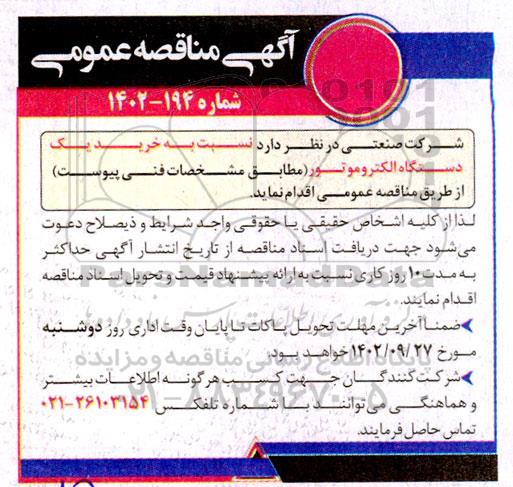 آگهی مناقصه عمومی
شماره ۱۹۴-۱۴۰۲
شرکت صنعتی در نظر دارد نسبت به خرید یک
دستگاه الکتروموتور (مطابق مشخصات فنی پیوست)
از طریق مناقصه عمومی اقدام نماید.
لذا از کلیه اشخاص حقیقی یا حقوقی واجد شرایط و ذیصلاح دعوت
می‌شود جهت دریافت اسناد مناقصه از تاریخ انتشار آگهی حداکثر
به مدت ۱۰ روز کاری نسبت به ارائه پیشنهاد قیمت و تحویل اسناد مناقصه
اقدام نمایند.
ضمنا آخرین مهلت تحویل پاکات تا پایان وقت اداری روز دوشنبه
مورخ ۱۴۰۲/۰۹/۲۷ خواهد بود.
شرکت کنندگان جهت کسب هرگونه اطلاعات بیشتر
و هماهنگی می توانند با شماره تلفکس ۲۶۱۰۳۱۵۴-۰۲۱
تماس حاصل فرمایند.